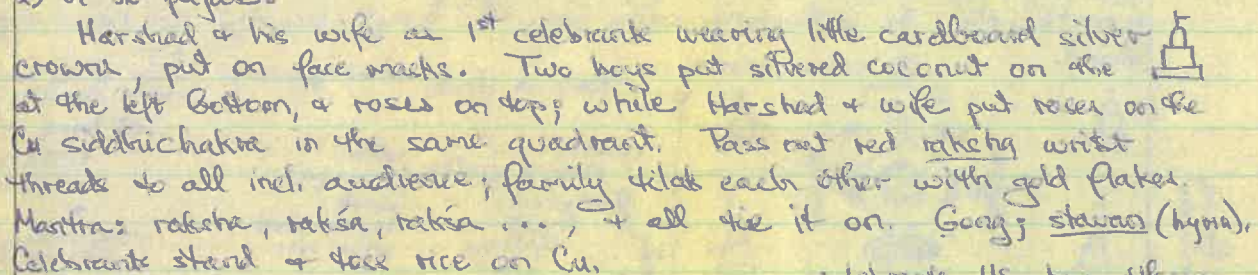 Harshad & his wife as 1st celebrants wearing little cardboard silver
crowns, put on face masks. Two boys put silvered coconut on the
at the left bottom, & roses on top; while Harshad & wife put roses on the
Cu siddhichakra in the same quadrant. Pass out red raksha wrist
threads to all incl. audience; family tilak each other with gold flakes.
Mantra: raksha, rakśa, rakśa ..., & all tie it on. Gong; stavan (hymn).
Celebrants stand & toss rice on Cu.